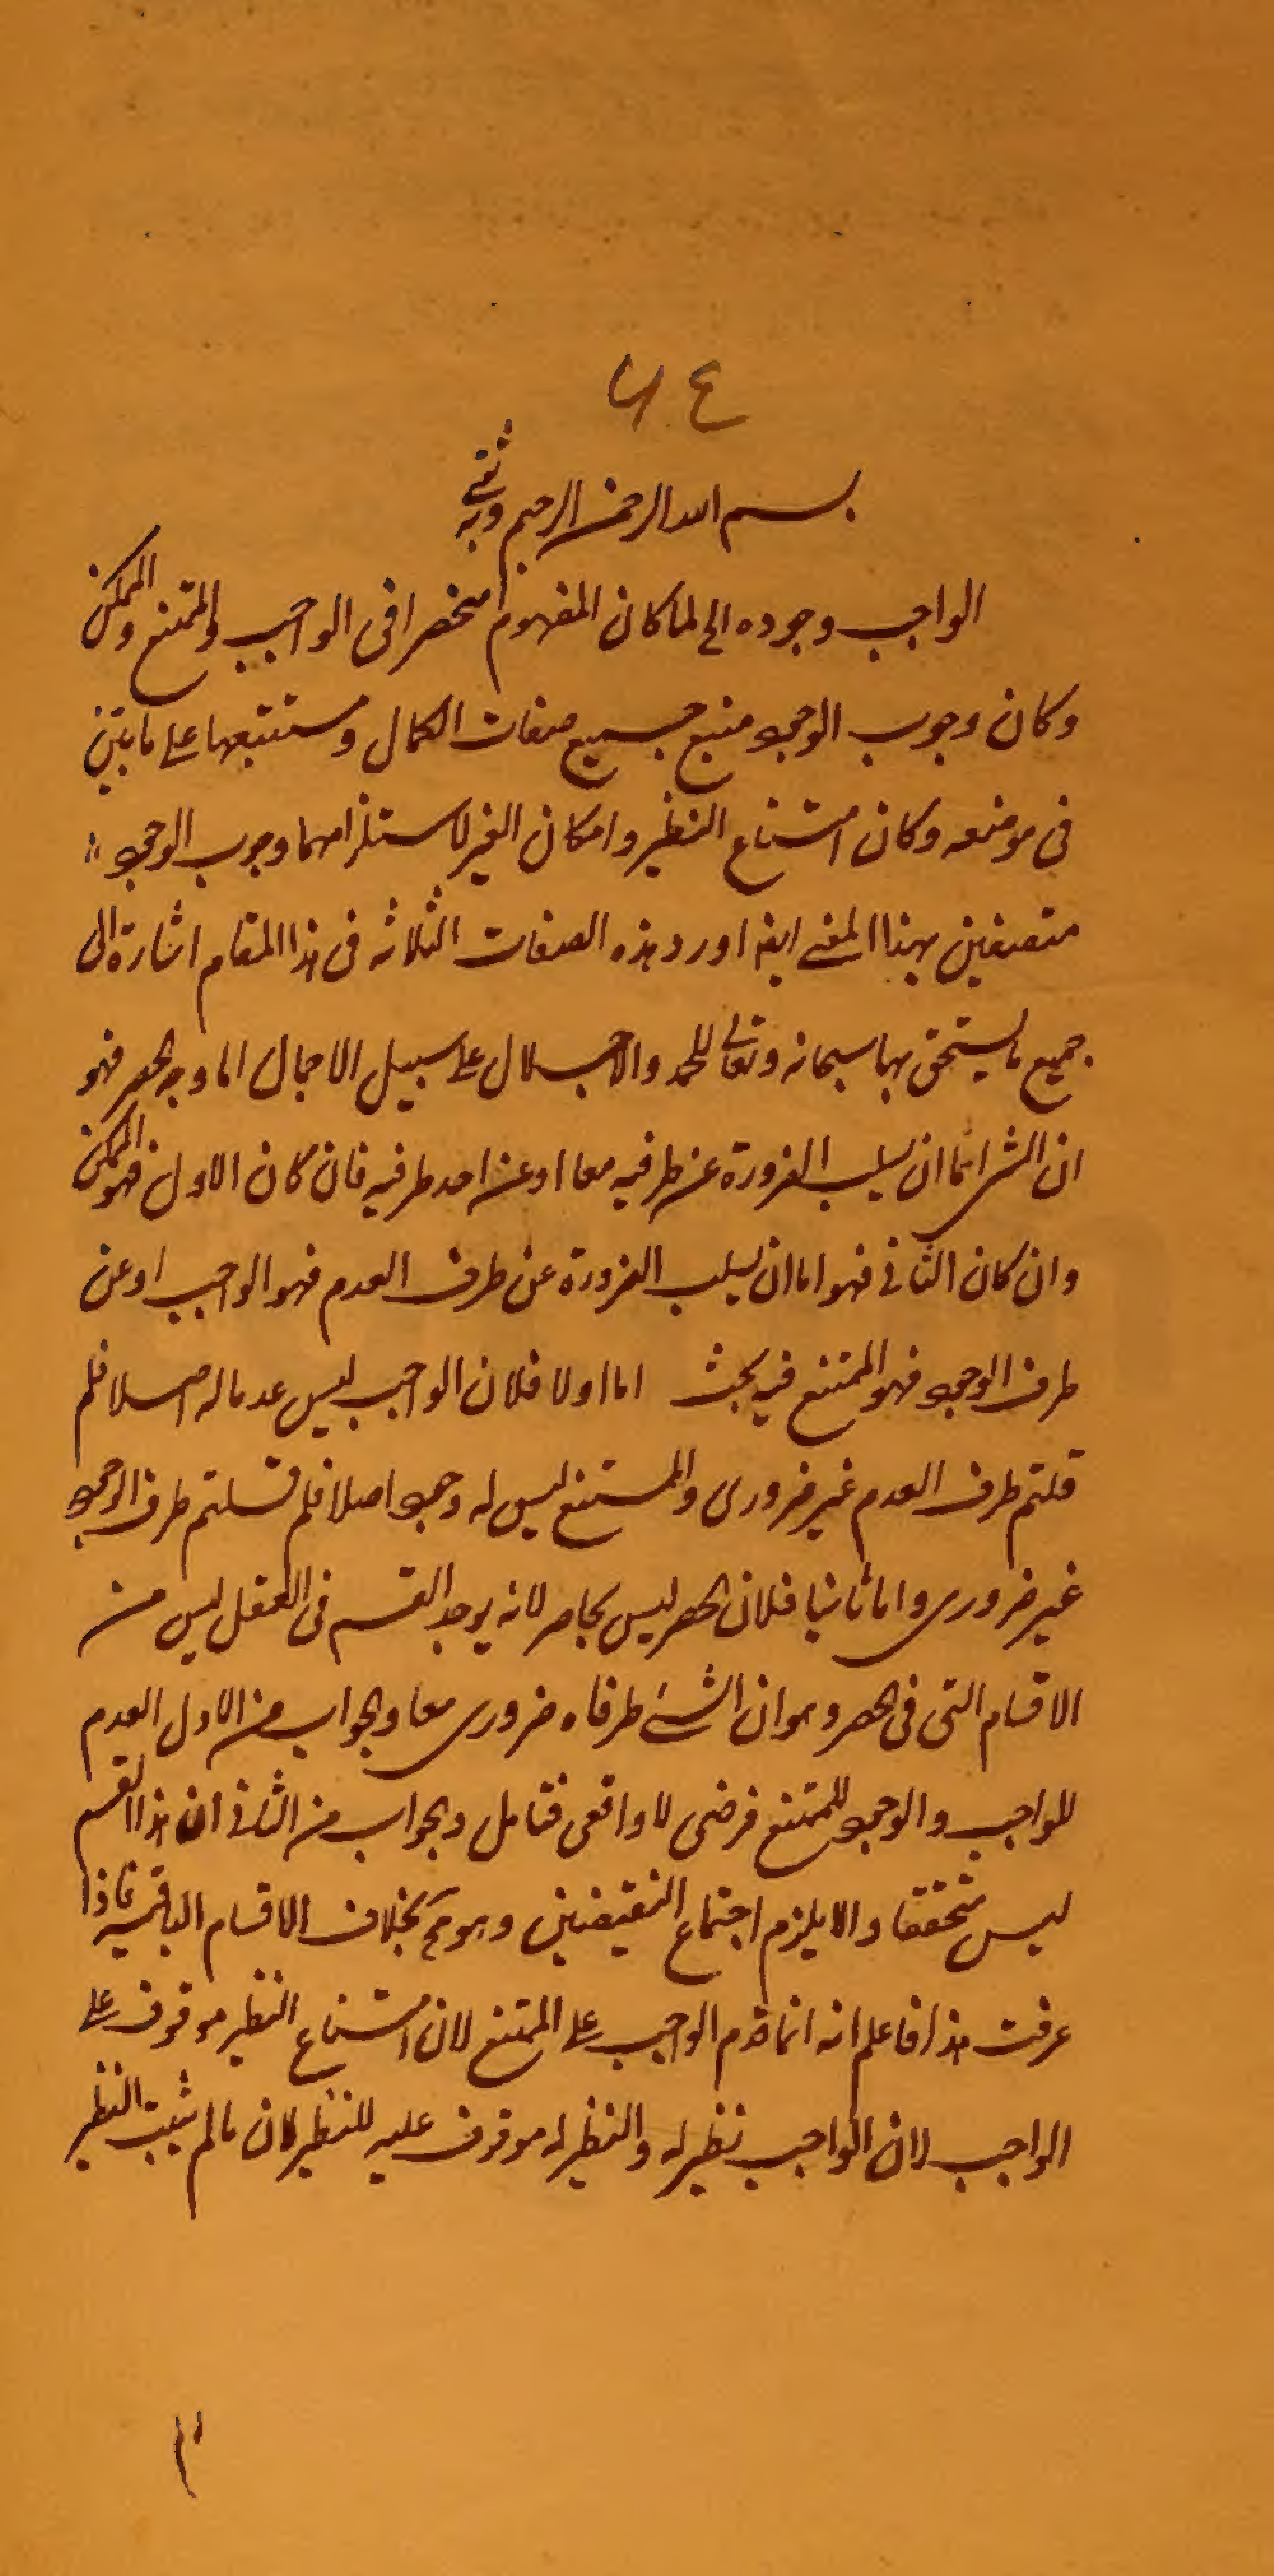 ٦٤
بسم الله الرحمن الرحيم وبه ثقتي
الواجب وجوده الخ لما كان المفهوم منحصرا فى الواجب والممتنع والممكن
وكان وجوب الوجود منبع جميع صفات الكمال ومستتبعها على ما بين
فى موضعه وكان امتناع النظير وامكان الغير لاستلزامهما وجوب الوجود
متصفين بهذا المعنى ايضا اورد هذه الصفات الثلاثه فى هذا المقام اشارة الى
جميع ما يستحق بها سبحانه وتعالى للحمد والاجلال على سبيل الاجمال اما وجه الحصر فهو
ان الشئ اما ان يسلب الضرورة عن طرفيه معا او عن احد طرفيه فان كان الاول فهو الممكن
وان كان الثانى فهو اما ان يسلب الضرورة عن طرف العدم فهو الواجب او عن
طرف الوجود فهو الممتنع فيه بحث اما اولا فلان الواجب ليس عدما له اصلا فلم
قلتم طرف العدم غير ضرورى والممتنع ليس له وجود اصلا فلم قلتم طرف الوجود
غير ضرورى واما ثانيا فلان الحصر ليس بحاصر لانه يوجد القسم فى العقل ليس من
الاقسام التى فى الحصر وهو ان الشئ طرفاه ضرورى معا والجواب من الاول العدم
للواجب والوجود للممتنع فرضى لا واقعى فتامل والجواب من الثانى ان هذا القسم
ليس متحققا والا يلزم اجتماع النقيضين وهو مح بخلاف الاقسام الباقيه فاذا
عرفت هذا فاعلم انه انما قدم الواجب على الممتنع لان امتناع النظير موقوف على
الواجب لان الواجب نظير له والنظير له موقوف عليه للنظير لان ما لم يثبت النظير